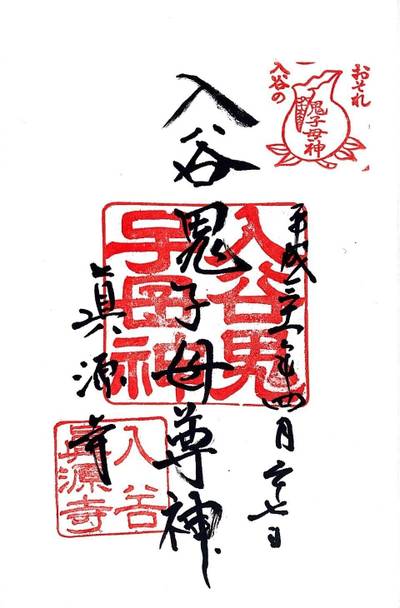 おそれ
入谷の
鬼子母神
平成 年四月二十七日
入谷鬼子母尊神
眞源寺
入谷鬼
子母神
入谷
眞源寺